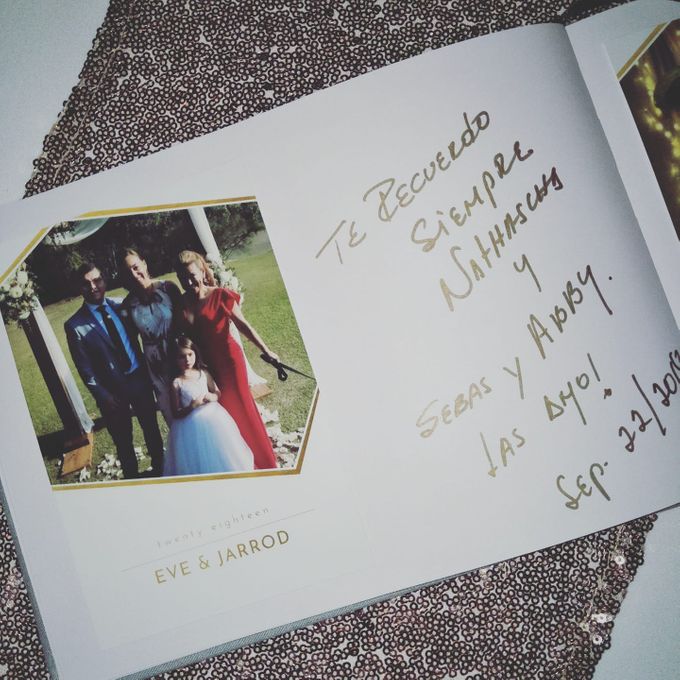 twenty eighteen
EVE & JARROD
TE RECUERDO
SIEMPRE
NATHASCHA
Y
SEBAS Y ABBY.
LAS AMO!
SEP. 22/2018